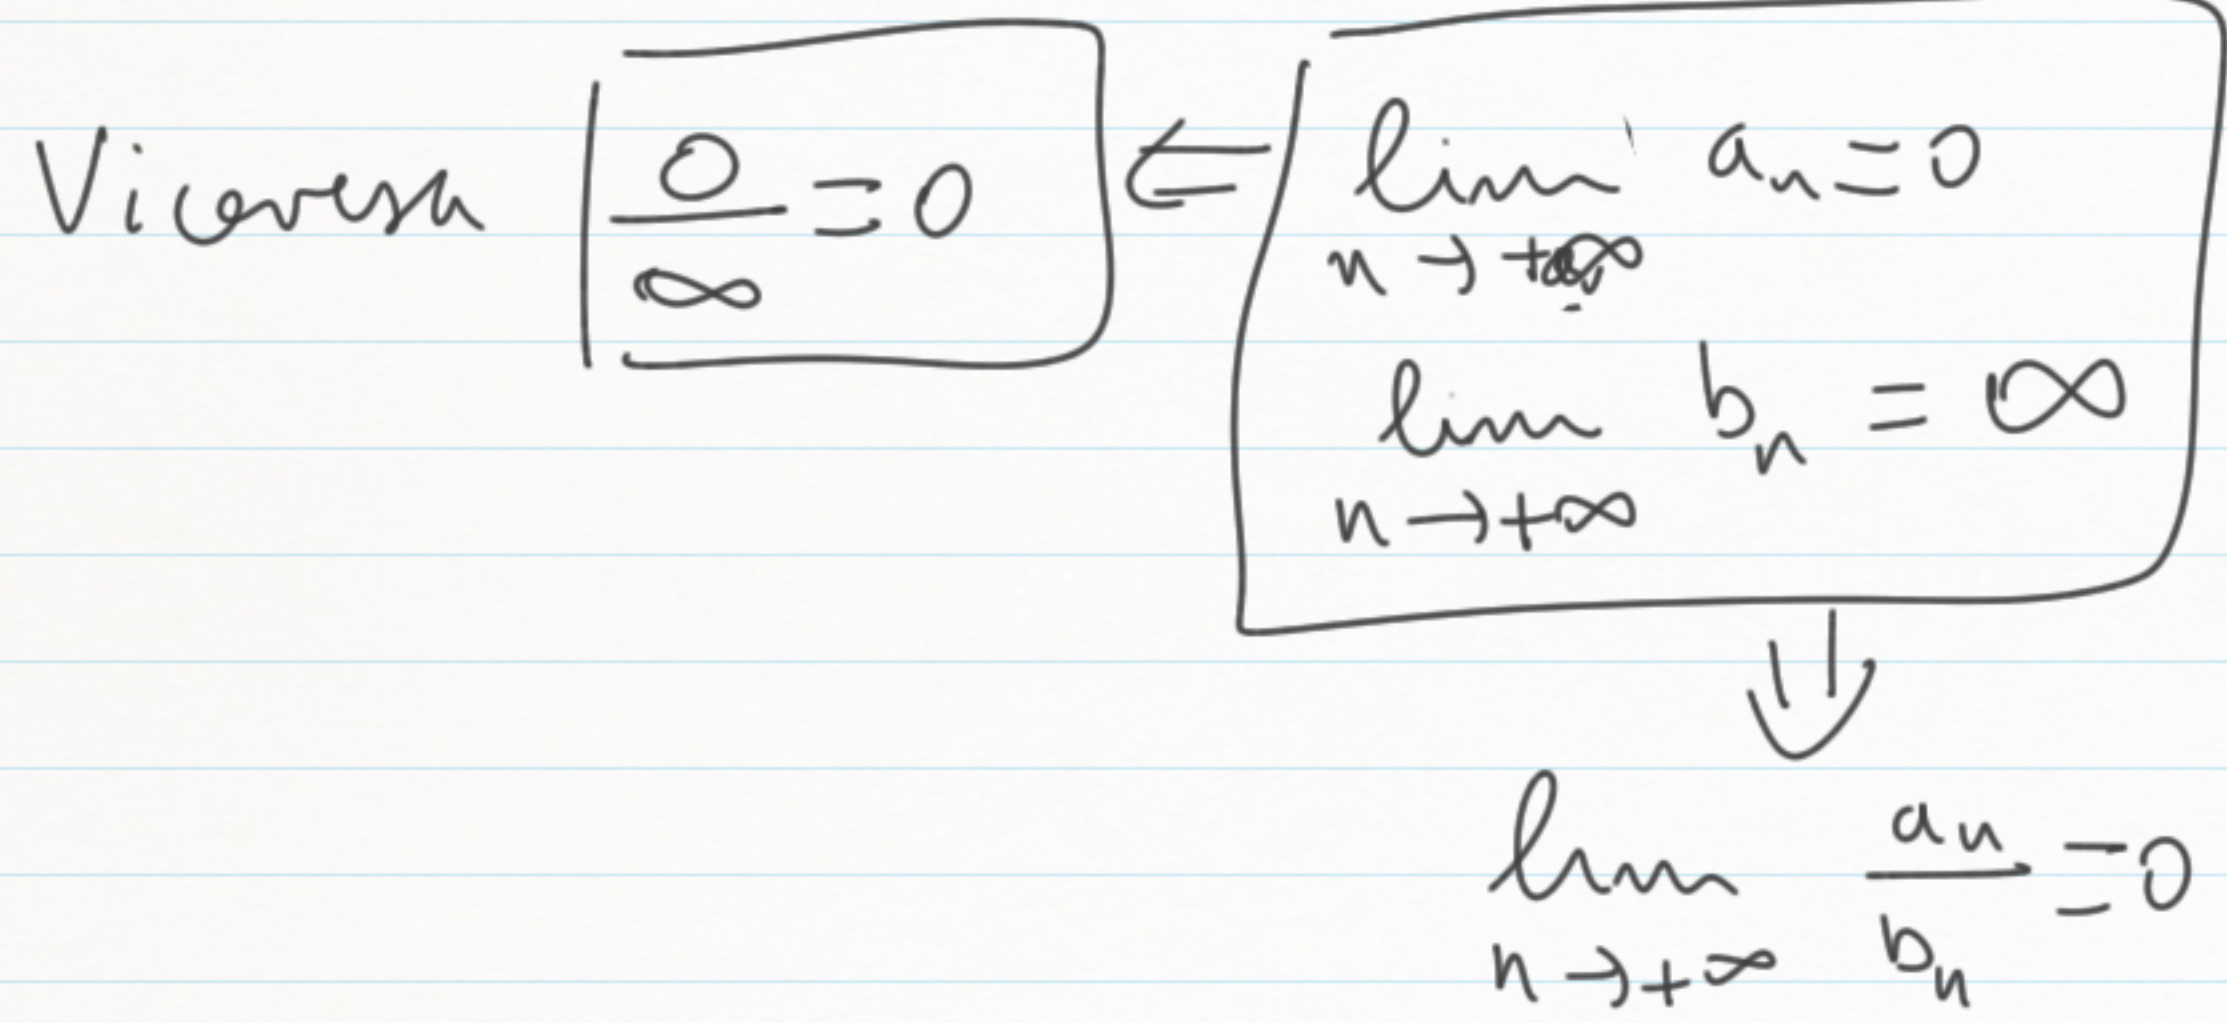 Viceversa 0/∞ = 0 ⇐ lim n→+∞ aₙ = 0
lim n→+∞ bₙ = ∞
⇓
lim n→+∞ aₙ/bₙ = 0